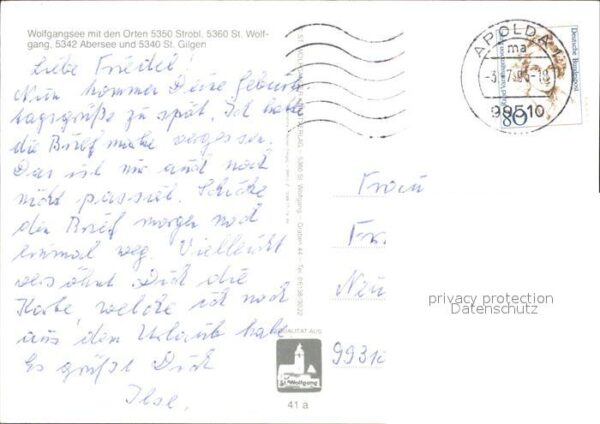 Wolfgangsee mit den Orten 5350 Strobl, 5360 St. Wolf-
gang, 5342 Abersee und 5340 St. Gilgen
Liebe Friedel!
Nun kommen Deine Geburts
tagsgrüße zu spät. Ich hatte
die Briefmarke vergessen.
Das ist mir auch noch
nicht passiert. Schicke
den Brief morgen noch
einmal weg. Vielleicht
versöhnt Dich die
Karte, welche ich noch
aus dem Urlaub hatte.
Es grüßt Dich
Ilse.
5360 St. Wolfgang
QUALITÄT AUS
St. Wolfgang
41 a
APOLDA 1
ma
99510
Deutsche Bundespost
80
Frau
Fr.
Neu
privacy protection
Datenschutz
9931